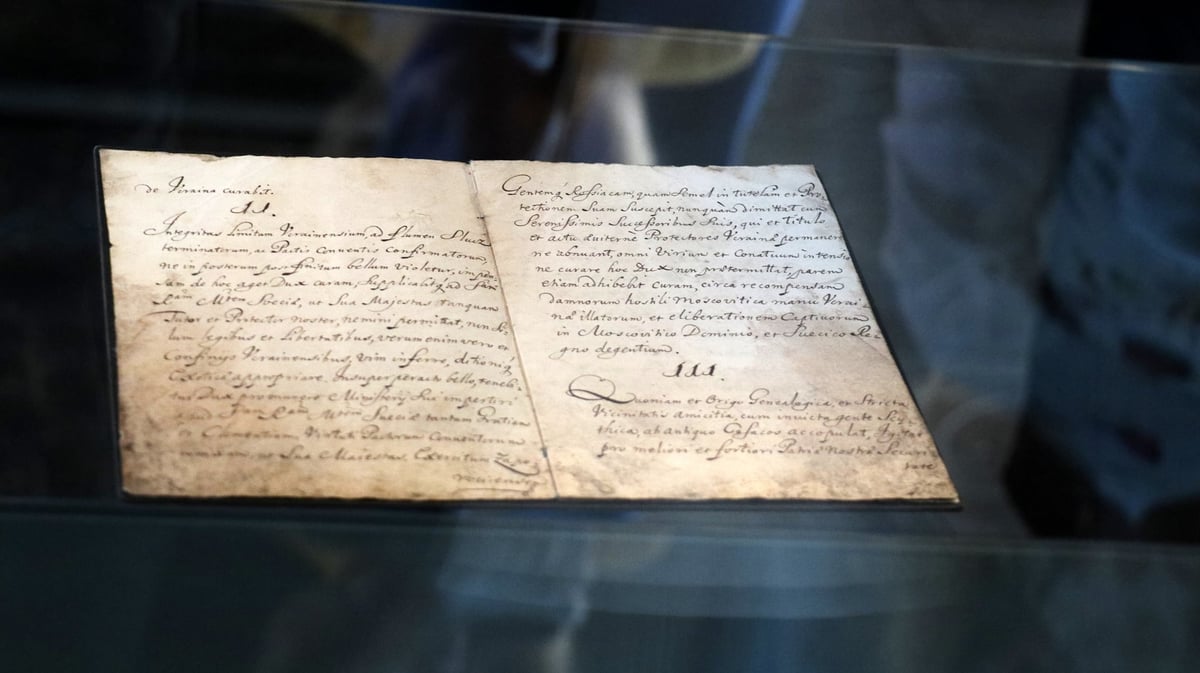 de Ucraina curabit.
II.
Integritas limitum Ucrainensium, ad flumen Sluez
terminatorum, ac Pactis Conventis Confirmatorum,
ne in posterum post finitum bellum violetur, impen
sam de hoc aget Dux curam, Supplicabitq́ ad Sac
ram Rₑₐₘ Mtem Sveciæ, ut Sua Majestas tanquam
Tutor et Protector noster, nemini permittat, non So
lum legibus et Libertatibus, verum enim vero et
Confinijs Ucrainensibus, vim inferre, ditioniq́
Exoticæ appropriare. Insuper peracto bello, tenebi
tur Dux pro munere Ministerij Sui impertiri
apud Rₑₐₘ Mtem Sveciæ tantam Gratiam
et Clementiam, Virtute Pactorum Conventorum
ut Sua Majestas Exercitum Zapo
roviensem
Gentemq́ Rossiacam, quam Semel in tutelam et Pro
tectionem Suam Suscepit, nunquàm dimittat cum
Serenissimis Sucessoribus Suis, qui et titulo
et actu duiternè Protectores Ucrainæ permanere
ne abnuant, omni Virium et Conatuum intensio
ne curare hoc Dux non prætermittat, parem
etiam adhibebit curam, circa recompensam
damnorum hostili Moscovitica manu Ucrai
næ illatorum, et eliberationem Captivorum
in Moscovitico Dominio, et Suecico Re
gno degentium.
III.
Quoniam et Origo Genealogica, et Stricta
Vicinitatis amicitia, cum invicta gente Scy
thica, ab antiquo Cosacos accopulat, Igitur
pro meliori et fortiori Patriæ Nostræ Securi
tate